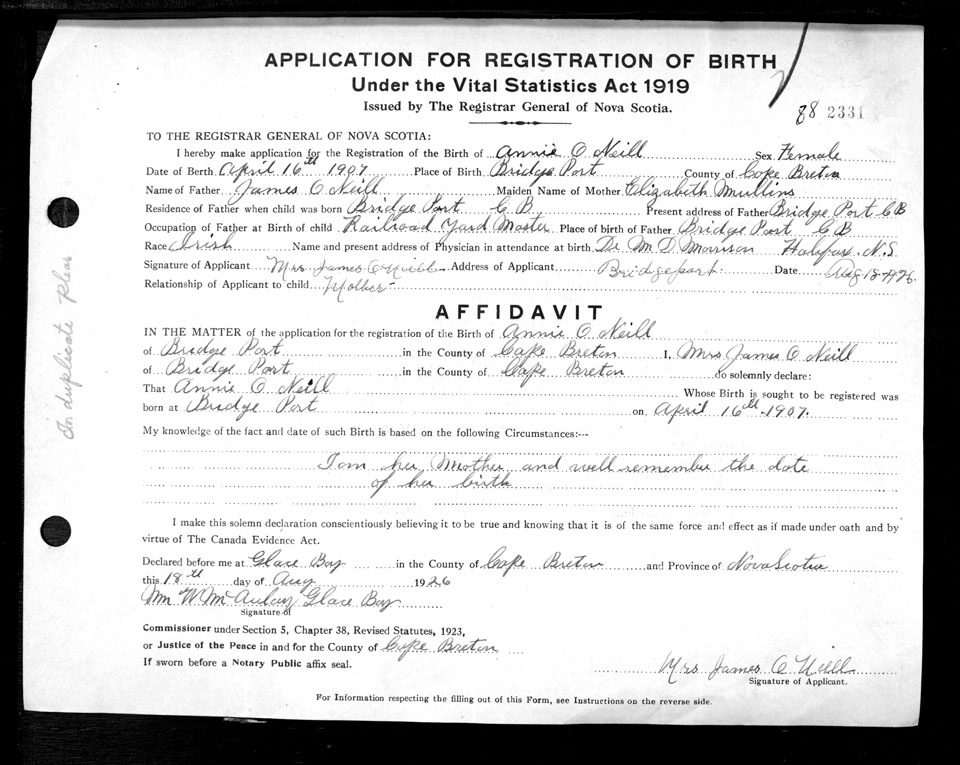 APPLICATION FOR REGISTRATION OF BIRTH
Under the Vital Statistics Act 1919
Issued by The Registrar General of Nova Scotia.
88 2331
TO THE REGISTRAR GENERAL OF NOVA SCOTIA:
I hereby make application for the Registration of the Birth of Annie O Neill Sex Female
Date of Berth April 16th 1907 Place of Birth Bridge Port County of Cape Breton
Name of Father James O Neill Maiden Name of Mother Elizabeth Mullins
Residence of Father when child was born Bridge Port C B Present address of Father Bridge Port C B
Occupation of Father at Birth of child Railroad Yard Master Place of birth of Father Bridge Port C B
Race Irish Name and present address of Physician in attendance at birth Dr M D Morrison Halifax N.S.
Signature of Applicant Mrs James O'Neill Address of Applicant Bridgeport Date Aug 18-1926
Relationship of Applicant to child Mother
In duplicate Please
AFFIDAVIT
IN THE MATTER of the application for the registration of the Birth of Annie O Neill
of Bridge Port in the County of Cape Breton I, Mrs James O Neill
of Bridge Port in the County of Cape Breton do solemnly declare:
That Annie O Neill Whose Birth is sought to be registered was
born at Bridge Port on April 16th 1907.
My knowledge of the fact and date of such Birth is based on the following Circumstances:--
I am her Mother and well remember the date
of her birth
I make this solemn declaration conscientiously believing it to be true and knowing that it is of the same force and effect as if made under oath and by
virtue of The Canada Evidence Act.
Declared before me at Glace Bay in the County of Cape Breton and Province of Nova Scotia
this 18th day of Aug 1926
Wm W McAulay Glace Bay
Signature of
Commissioner under Section 5, Chapter 38, Revised Statutes, 1923,
or Justice of the Peace in and for the County of Cape Breton
If sworn before a Notary Public affix seal.
Mrs James O Neill
Signature of Applicant.
For Information respecting the filling out of this Form, see Instructions on the reverse side.